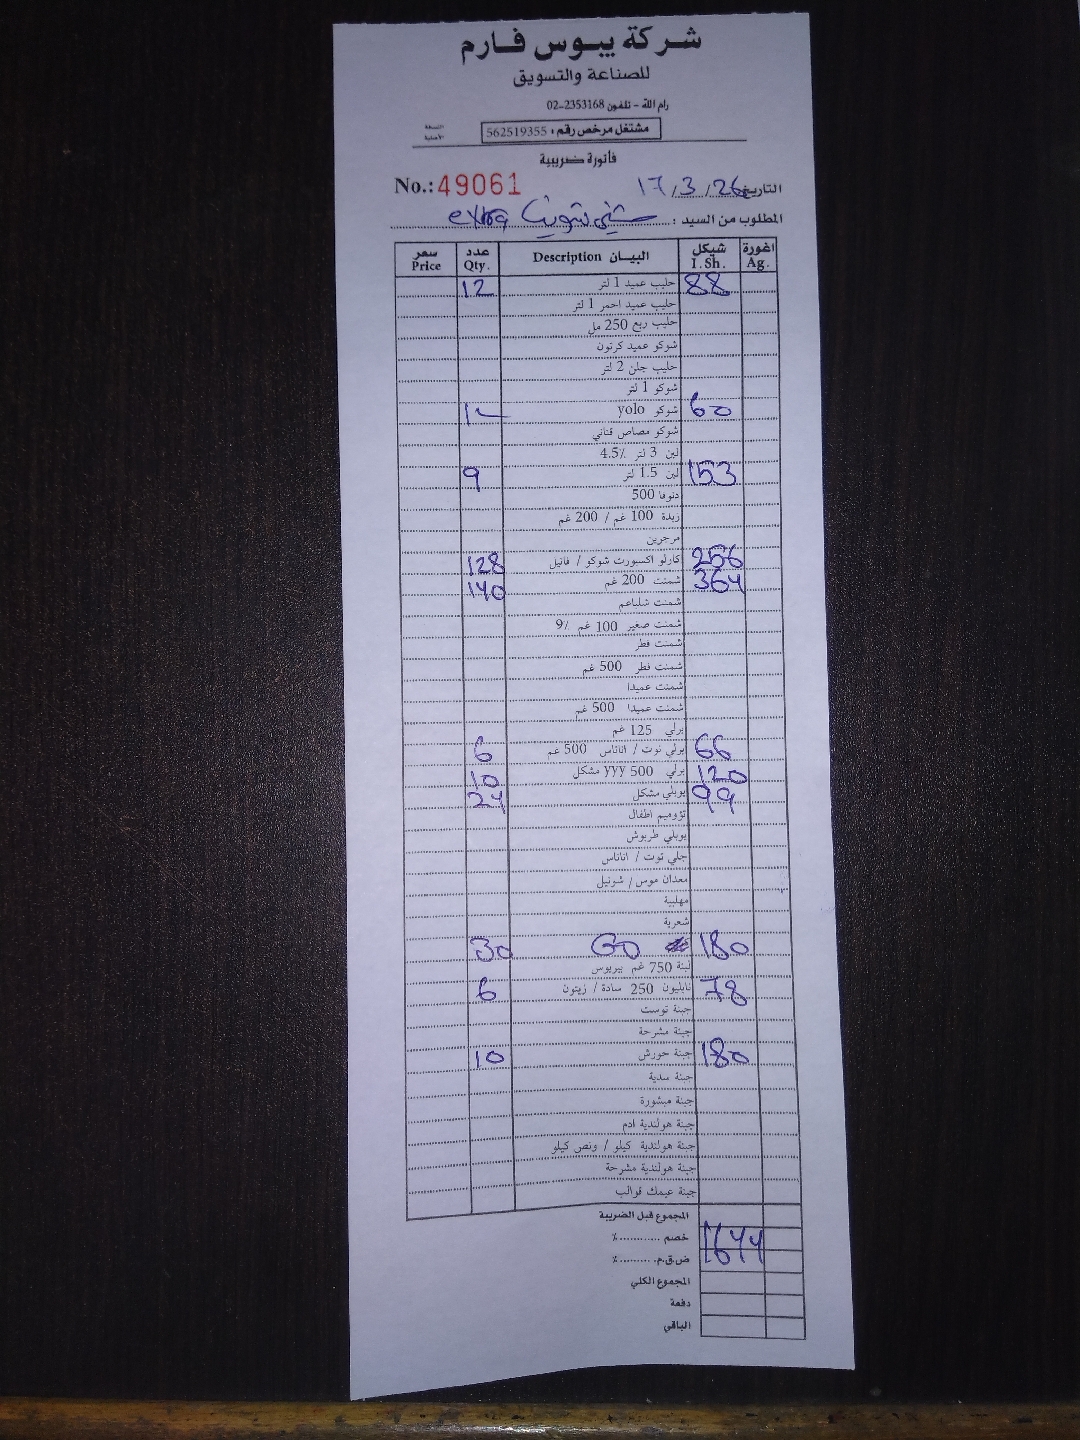 شركة يبوس فارم
للصناعة والتسويق
رام الله - تلفون 2353168-02
النسخة الأصلية
مشتغل مرخص رقم: 562519355
فاتورة ضريبية
No.: 49061 التاريخ 17/3/26
المطلوب من السيد: extra
سعر Price عدد Qty. البيــان Description شيكل I.Sh. اغورة Ag.
12 حليب عميد 1 لتر 88
حليب عميد احمر 1 لتر
حليب ربع 250 مل
شوكو عميد كرتون
حليب جلن 2 لتر
شوكو 1 لتر
12 شوكو yolo 60
شوكو مصاص قناني
لبن 3 لتر 4.5٪
9 لبن 1.5 لتر 153
دنونا 500
زبدة 100 غم / 200 غم
مرجرين
128 كارلو اكسبورت شوكو / فانيل 256
140 شمنت 200 غم 364
شمنت شلباعم
شمنت صغير 100 غم 9٪
شمنت فطر
شمنت فطر 500 غم
شمنت عميدا
شمنت عميدا 500 غم
برلي 125 غم
6 برلي توت / اناناس 500 غم 66
10 برلي 500 yyy مشكل 120
24 يوبلي مشكل 99
تؤوميم اطفال
يوبلي طربوش
جلي توت / اناناس
معدان موس / شونيل
مهلبية
شعرية
30 GO 180
لبنة 750 غم يبوس
6 نابليون 250 سادة / زيتون 78
جبنة توست
جبنة مشرحة
10 جبنة حورش 180
جبنة سدية
جبنة مبشورة
جبنة هولندية ادم
جبنة هولندية كيلو / ونص كيلو
جبنة هولندية مشرحة
جبنة عيمك قوالب
المجموع قبل الضريبة
خصم ............٪ 1644
ض.ق.م. ..........٪
المجموع الكلي
دفعة
الباقي